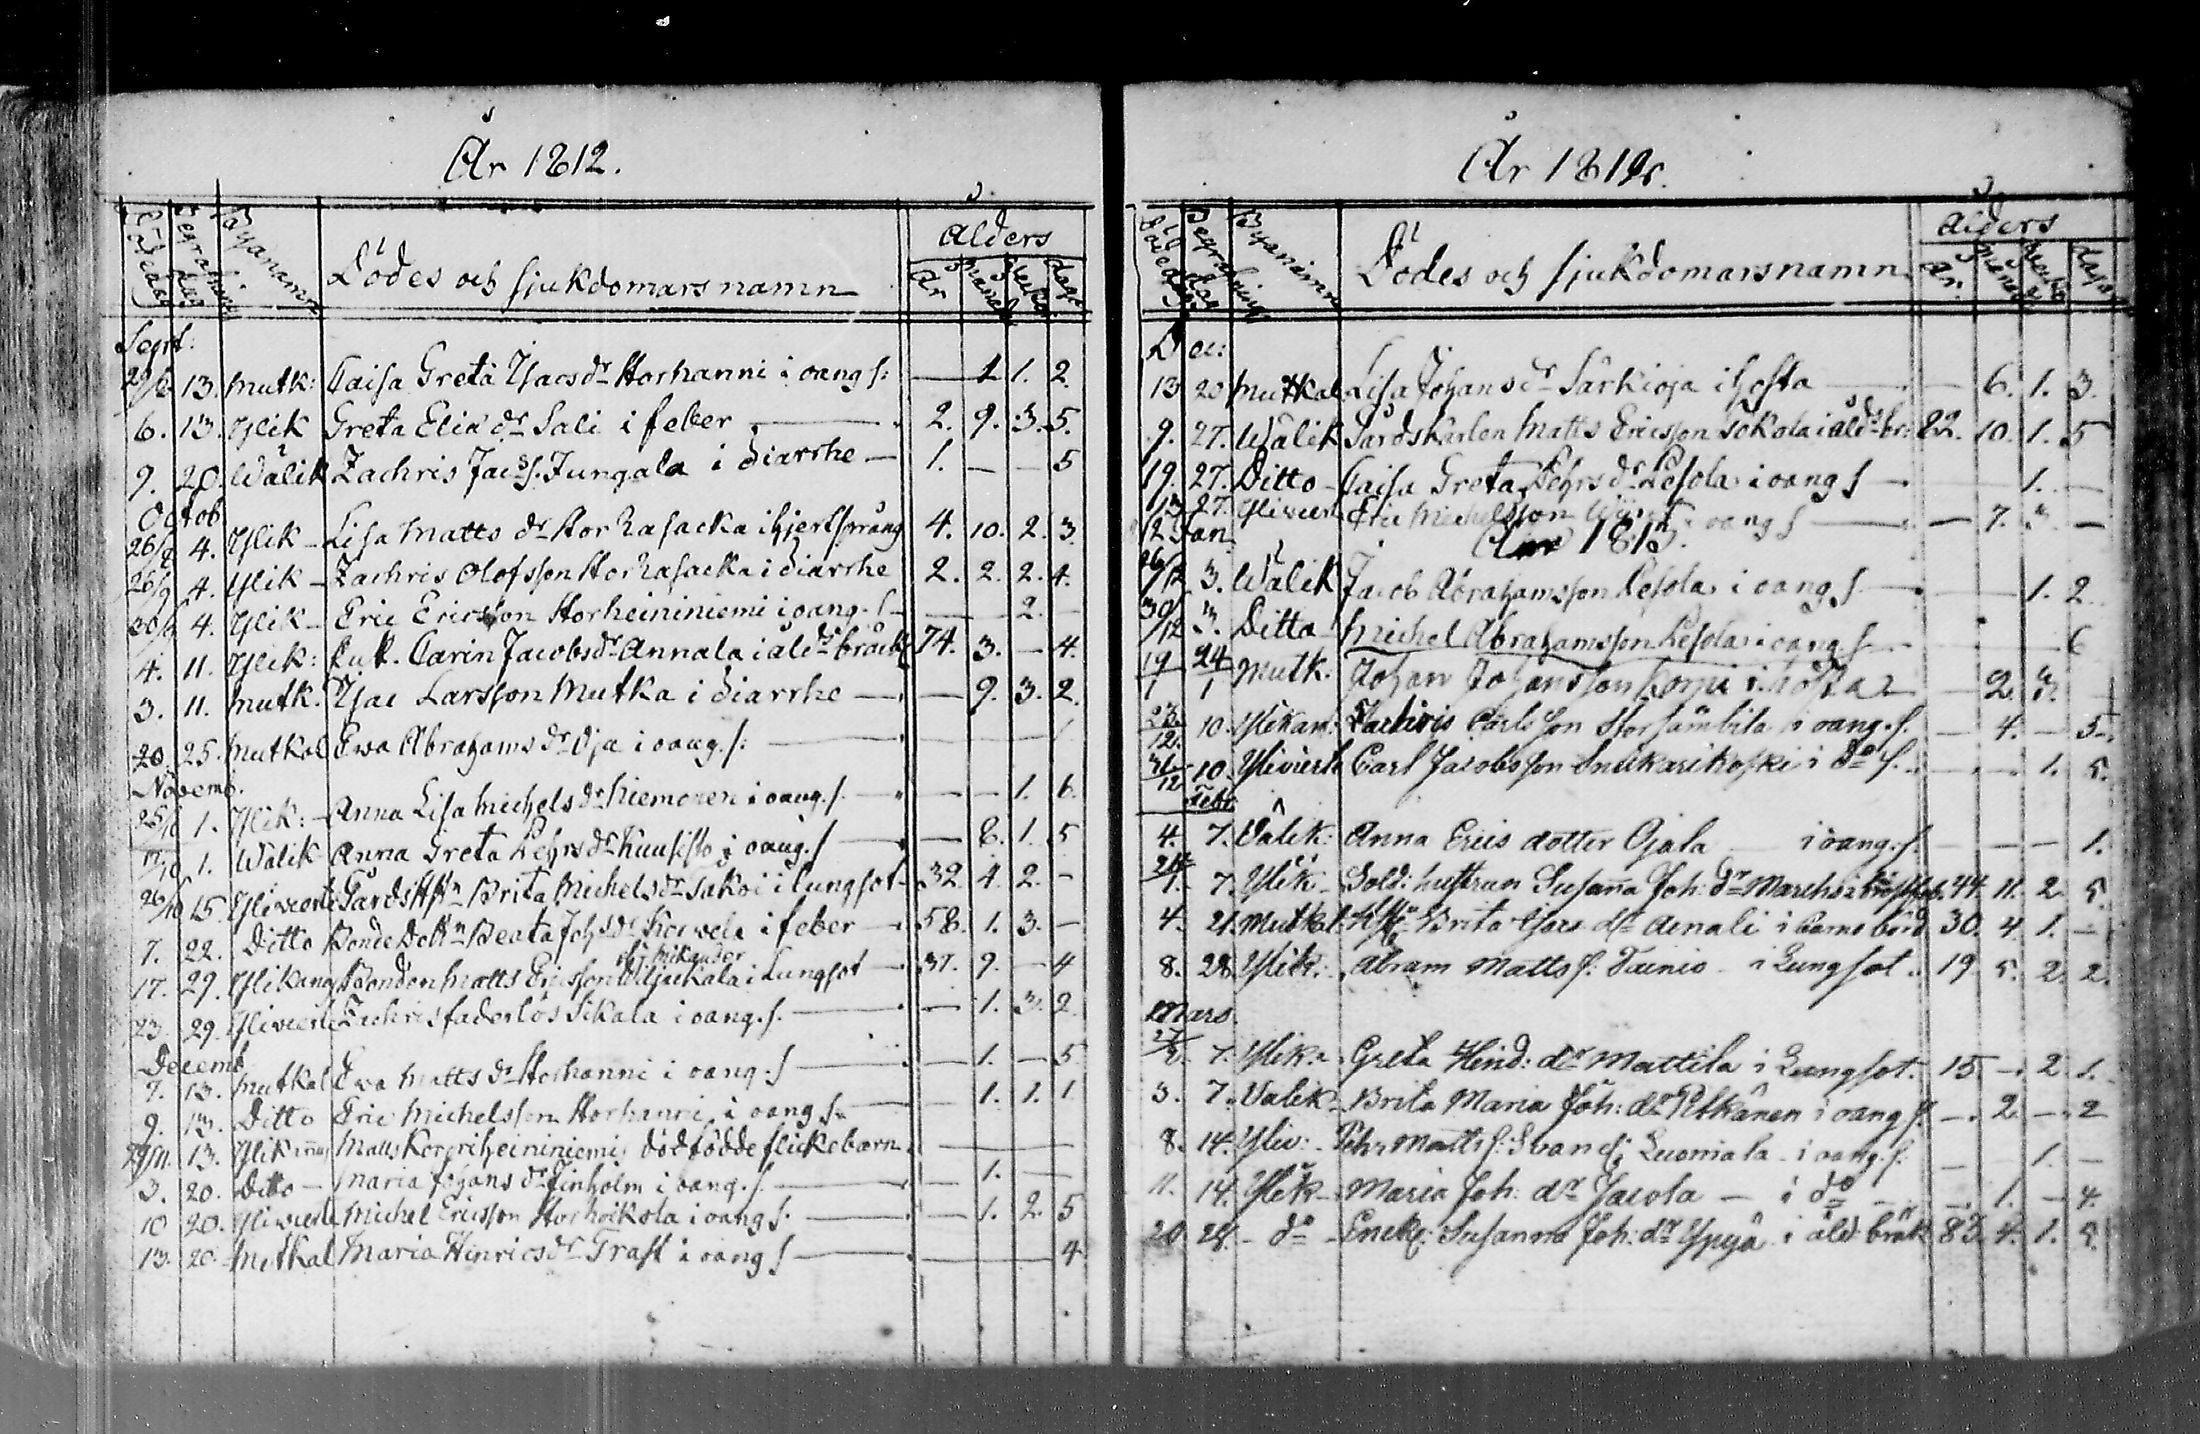 År 1812.
Dödedag Begrafnings dag Byanamn Dödes och sjukdomars namn Ålders
År Månad Veckor dagar
Sept:
29/8 13. Mutk: Caisa Greta Isacs dr Storhanni i oang s: — 1 1. 2.
6. 13. Ylik Greta Elia dr Sali i feber — 2. 9. 3. 5.
9. 20. Wälik Zachris Jacs s. Jungala i diarrhe — 1. — — 5
Octob
26/9 4. Ylik — Lisa Matts dr Stor Rasacka i hjertsprång 4. 10. 2. 3.
26/9 4. Ylik — Zachris Olofsson Stor Rasacka i diarrhe 2. 2. 2. 4.
4. Ylik — Eric Ericsson Storheininiemi i oang. s — 2. —
4. 11. Ylik: Carin Jacobs dr Annala i åld:bräckl 74. 3. — 4.
3. 11. Mutk. Isac Larsson Mutka i diarrhe — — 9. 3. 2.
20. 25. Mutkal Ewa Abrahams dr Oja i oang. s: —
Novemb.
25/10 1. Ylik: — Anna Lisa Michels dr Niemonen i oang. s. — — — 1. 6.
17/10 1. Walik Anna Greta Pehrs dr Kuusisto i oang. s — — 8. 1. 5
26/10 15. Ylivierte Brita Michels dr Sakoi i lungsot — 32. 4. 2. —
7. 22. Ditto Bonde Beata Johs dr Korwela i feber — 58. 1. 3. —
17. 29. Ylikang Bonden Matts Ericsson Wiljackala i Lungsot — 37. 9. — 4
23. 29. Ylivierte Zachris faderlös Sikala i oang. s. — — 1. 3. 2
Decemb
7. 13. Mutkal Ewa Matts dr Storhanni i oang: s — — 1. — 5
9. 13. Ditto Eric Michelsson Storhanni i oang s. — 1. 1. 1
29/11. 13. Matts Korpiheininiemi dödfödde flickebarn —
3. 20. Ditto — Maria Johans dr Finholm i oang. s — — 1. —
10 20. Ylivierte Michel Ericsson i oang s. — — 1. 2. 5
13. 20. Mutkal Maria Hinrics dr Grass i oang s — 4.
Dödedag Begrafnings dag Byanamn Dödes och sjukdomars namn Ålders
År. Månad Veckor dagar
Dec:
13 20 Mutkal Lisa Johans dr Särkioja i hosta — — 6. 1. 3.
9. 27. Wälik Matts Ericsson Sokola i åld:br: 82. 10. 1. 5
19. 27. Ditto — Caisa Greta Pehrs dr Lesola i oang s — 1. —
13 27. Ylivierte Eric Michelsson oang s — — 7. 3. —
12 Jan År 1813.
26/12 3. Wälik Jacob Abrahamsson Lesola i oang. s — 1. 2.
30/12 3. Ditto Michel Abrahamsson Lesola i oang. s — 6
19/1 24/1 Mutk: Johan Johansson Korpi i hosta — 2. 3.
10. Ylikan: Zachris Carlsson i oang. s. — 4. — 5.
31/12 10. Ylivierte Carl Jacobsson i do s. — — 1. 5.
Febr
4. 7. Välik: Anna Erics dotter Ojala — i oang. s. — — — 1.
7. Ylik — Sold: hustrun Susanna Joh: dr 44. 11. 2. 5.
4. 21. Mutkal. Brita Isacs dr Ainali i barnsbörd 30. 4. 1. —
8. 28. Ylik: — Abram Matts s: Vainio i Lungsot .. 19 5. 2. 2.
Mars
27/2 7. Ylik: — Greta Hind: dr Mattila i Lungsot. 15 — 2. 1.
3. 7. Valik — Brita Maria Joh: dr Pitkänen i oang s. — 2. — 2
8. 14. Yliv: — Pehr Matts s: Luomala i oang. s. — — 1. —
11. 14. Ylik — Maria Joh: dr Jacola — i do — — 1. — 4.
20 28. — do — Susanna Joh: dr Yppyä i åld:bräk 83. 4. 1. 5.